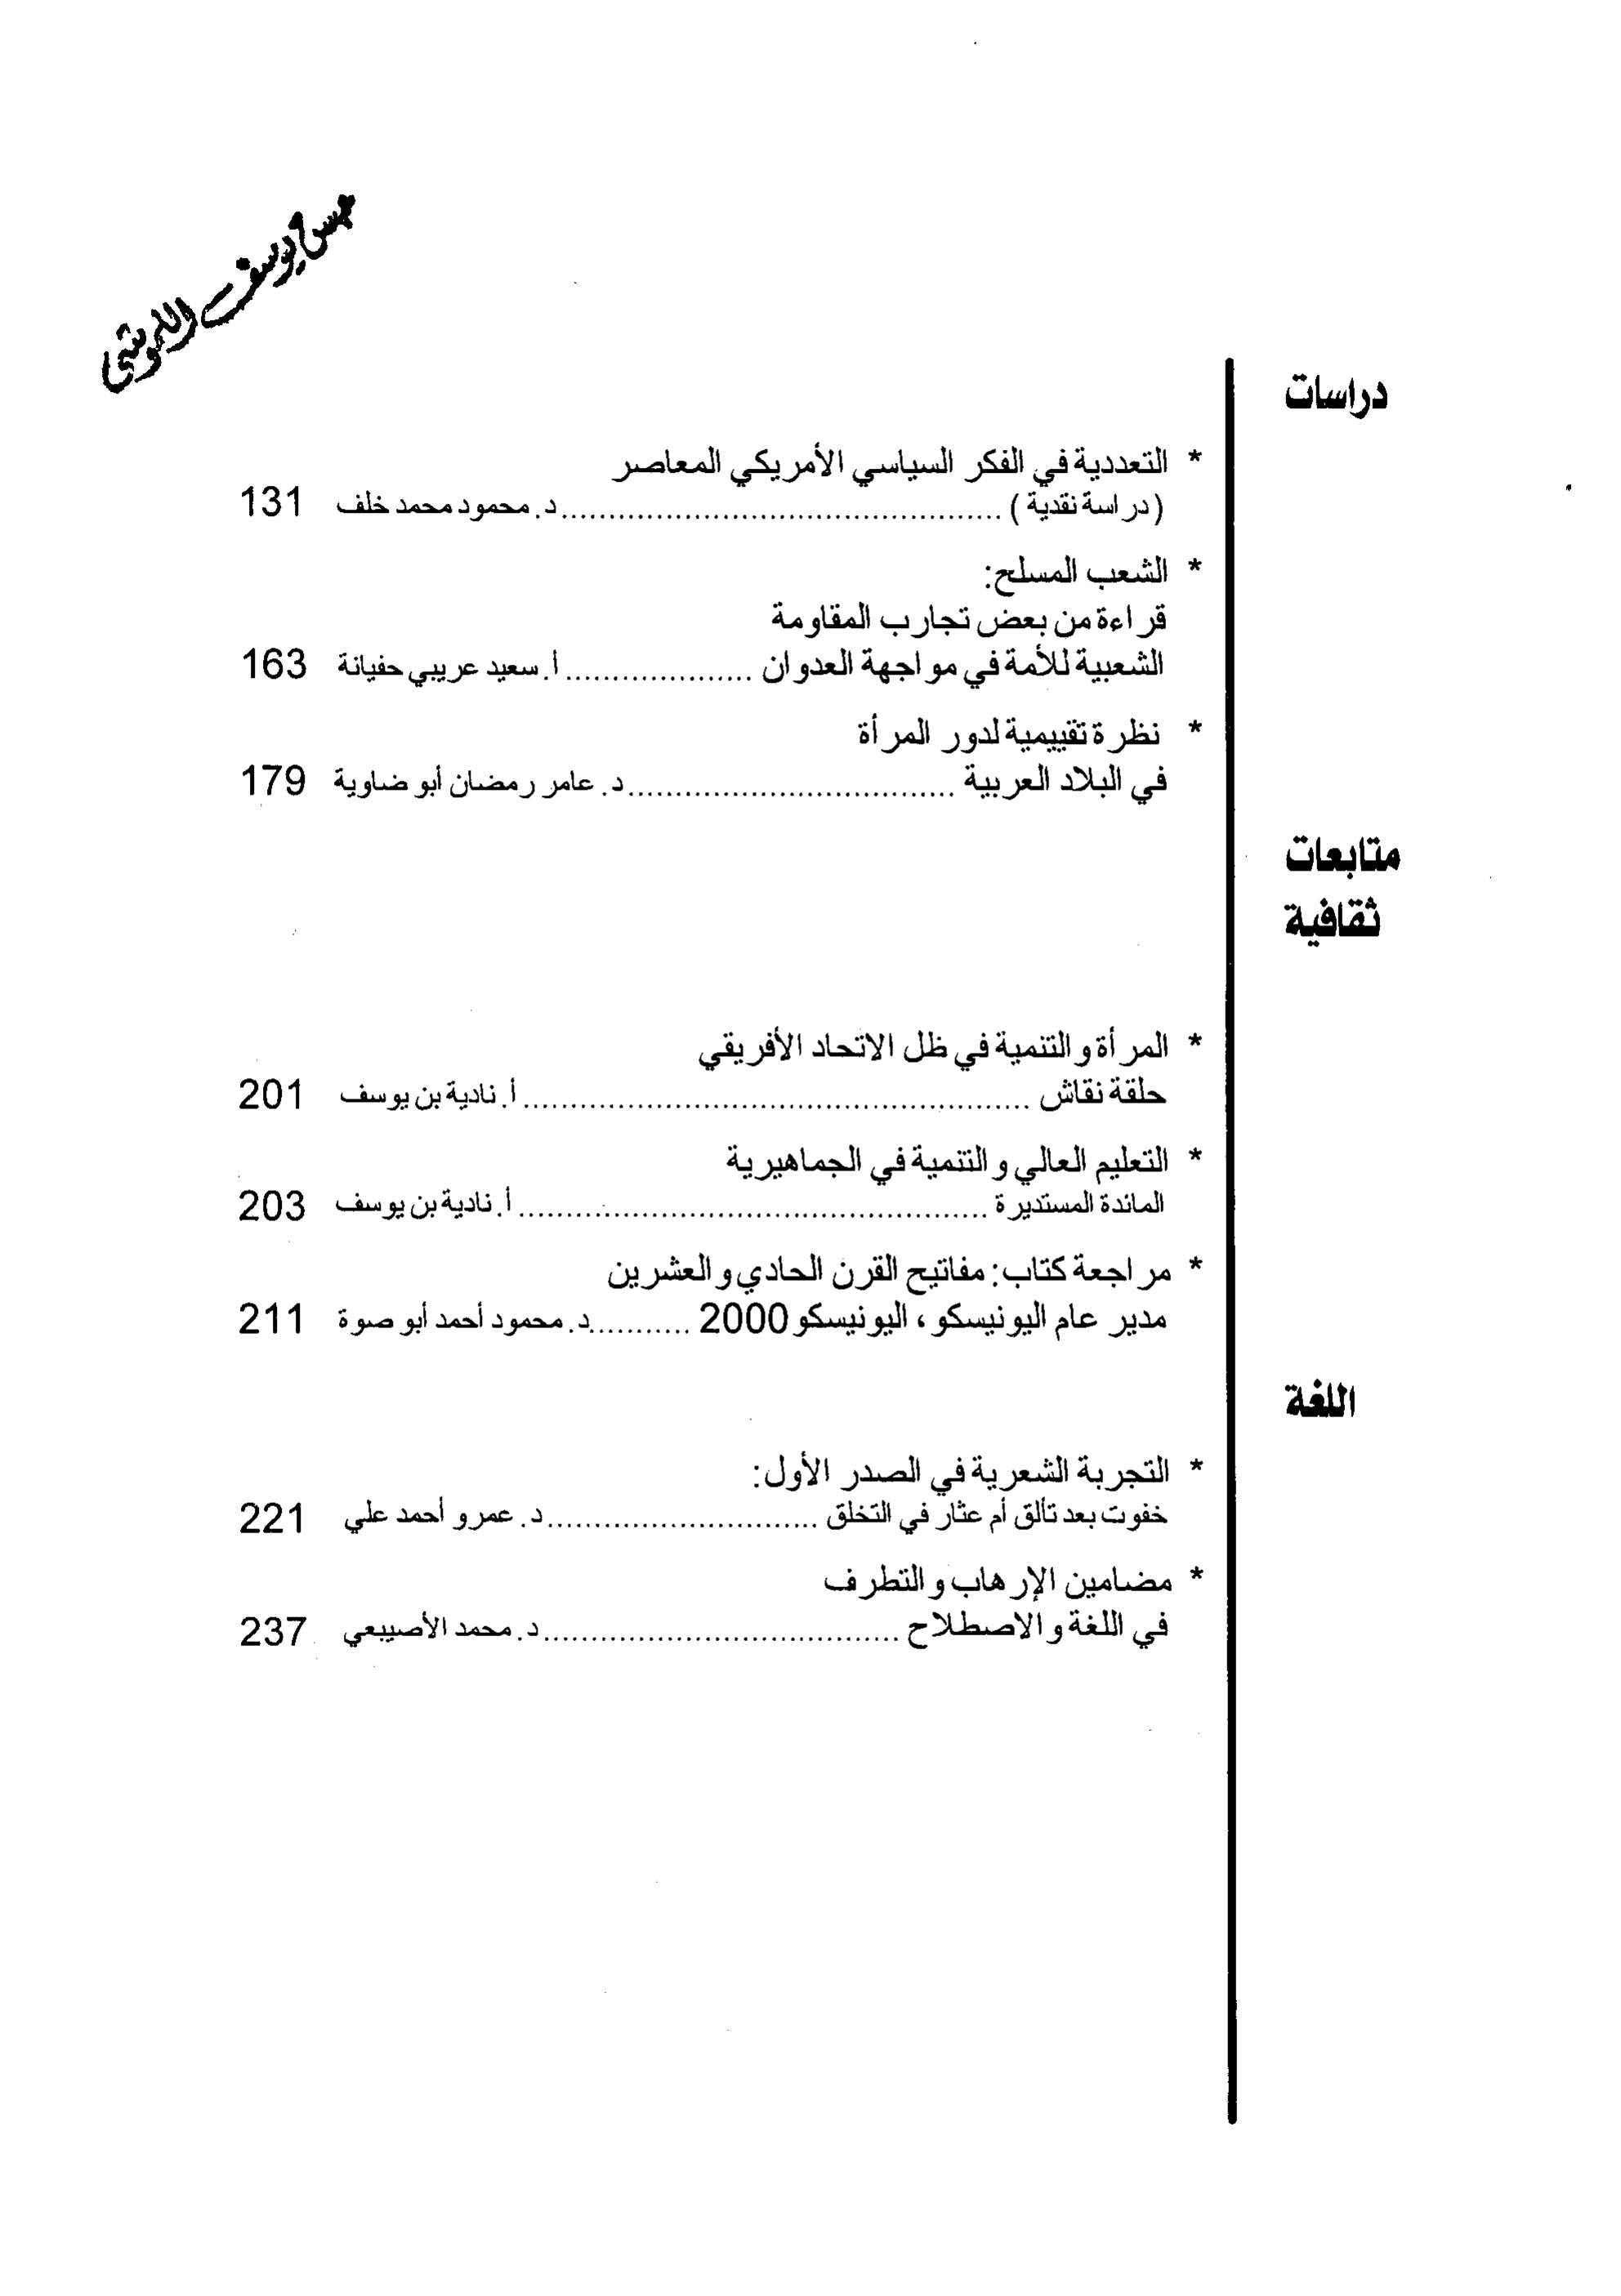 يوسف
دراسات
* التعددية في الفكر السياسي الأمريكي المعاصر
(دراسة نقدية) ............................................... د. محمود محمد خلف 131
* الشعب المسلح:
قراءة من بعض تجارب المقاومة
الشعبية للأمة في مواجهة العدوان .................... أ. سعيد عريبي حفيانة 163
* نظرة تقييمية لدور المرأة
في البلاد العربية ................................... د. عامر رمضان أبو ضاوية 179
متابعات
ثقافية
* المرأة والتنمية في ظل الاتحاد الأفريقي
حلقة نقاش ...................................................... أ. نادية بن يوسف 201
* التعليم العالي والتنمية في الجماهيرية
المائدة المستديرة .................................................. أ. نادية بن يوسف 203
* مراجعة كتاب: مفاتيح القرن الحادي والعشرين
مدير عام اليونيسكو، اليونيسكو 2000 ........... د. محمود أحمد أبو صوة 211
اللغة
* التجربة الشعرية في الصدر الأول:
خفوت بعد تألق أم عثار في التخلق ............................. د. عمرو أحمد علي 221
* مضامين الإرهاب والتطرف
في اللغة والاصطلاح ...................................... د. محمد الأصيبعي 237